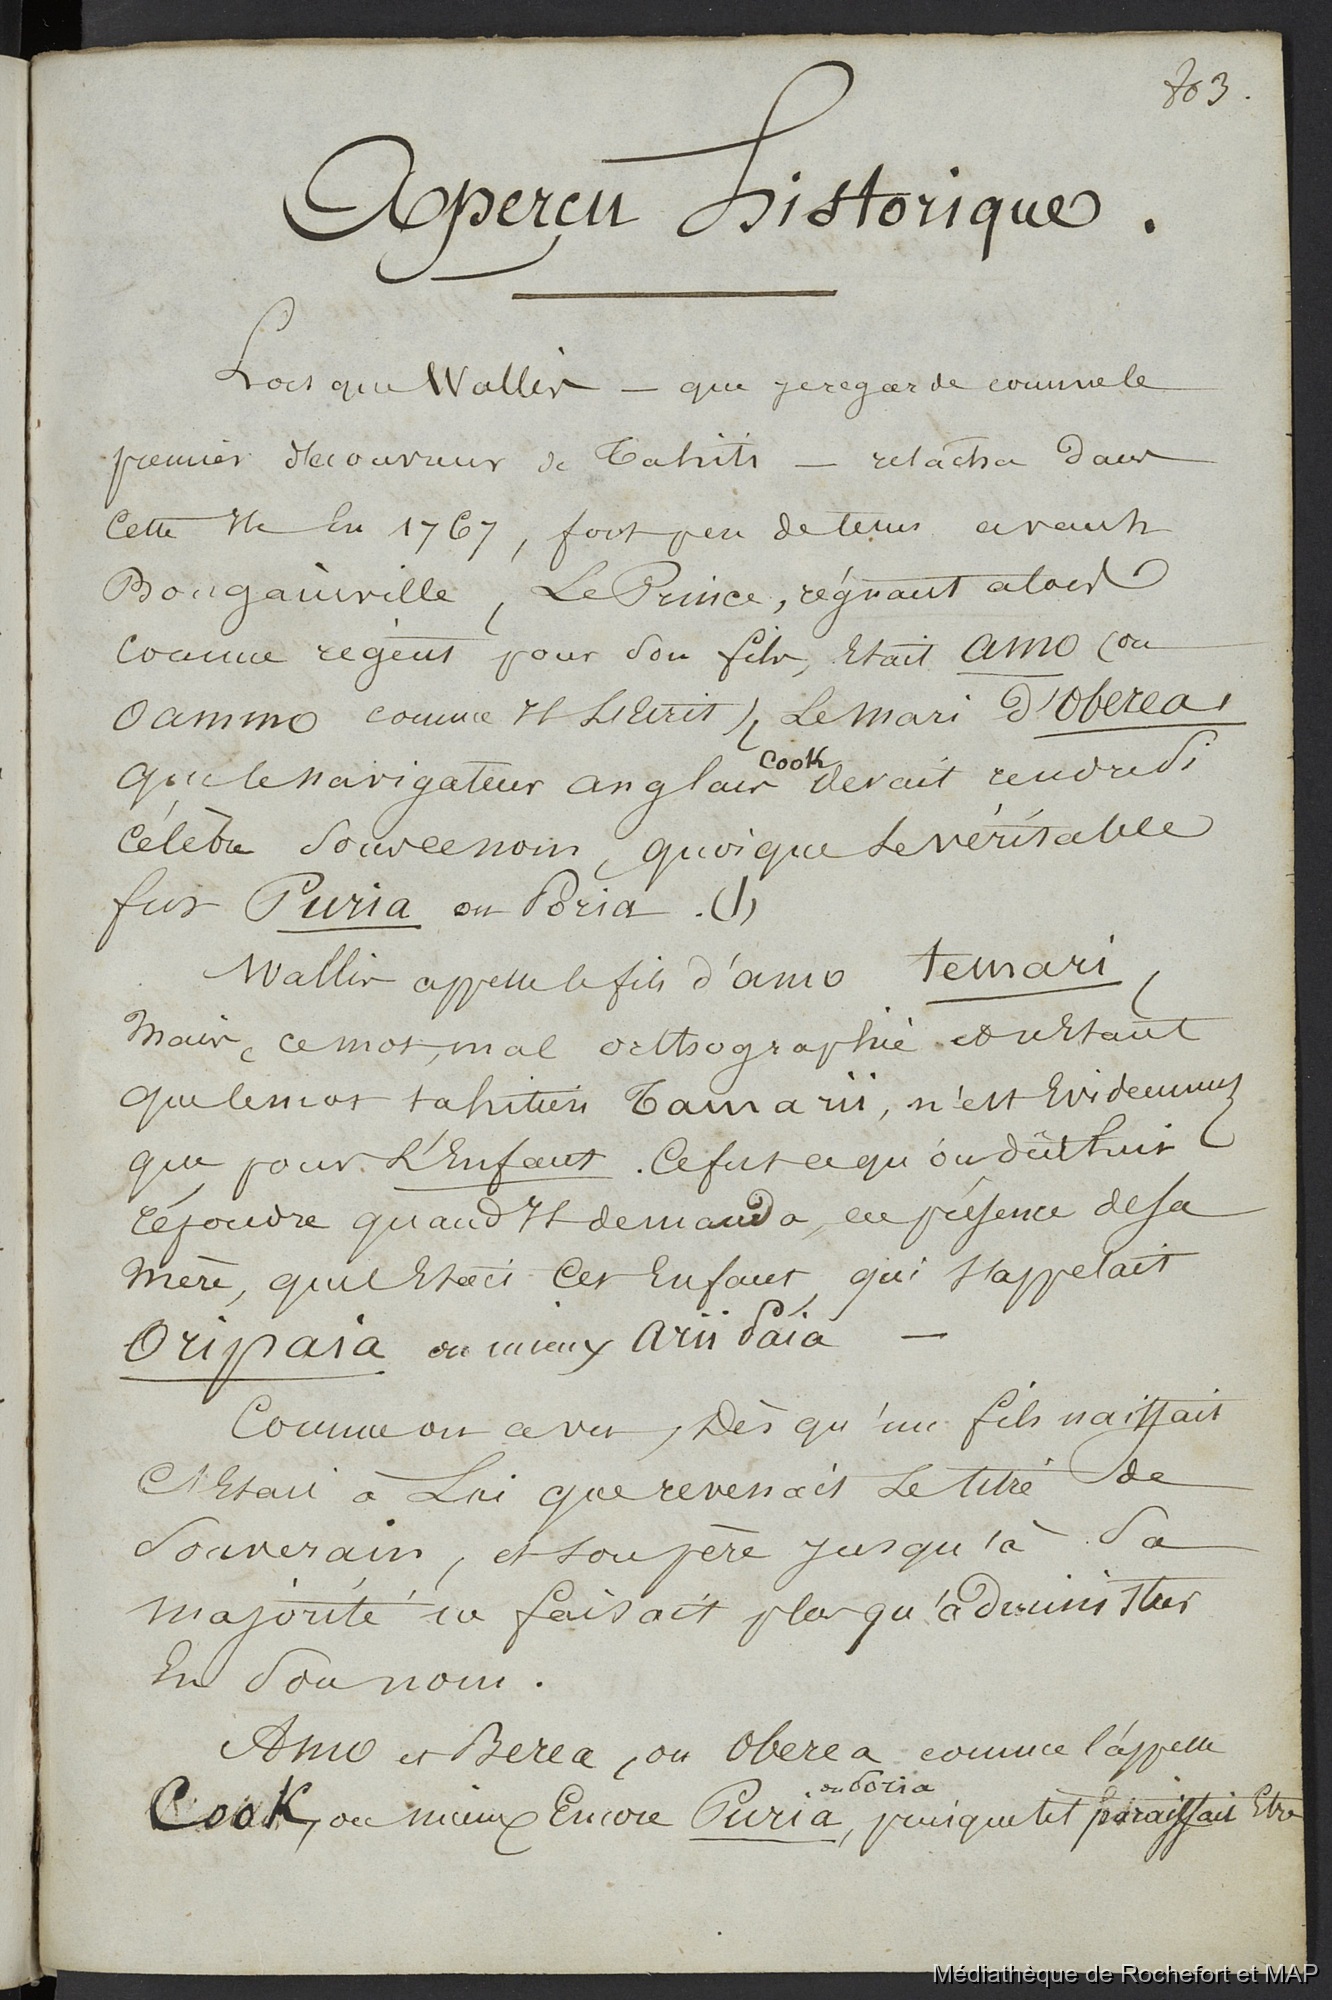 803.
Aperçu historique.
Lorsque Wallis — que je regarde comme le
premier découvreur de Tahiti — relâcha dans
cette Ile En 1767, fort peu de tems avant
Bougainville, Le Prince, régnant alors
comme régent pour son fils, Etait amo (ou
oammo comme Il L'Ecrit), Le mari d'Oberea,
que le navigateur anglais Cook devait rendre si
célèbre sous ce nom, quoique le véritable
fut Puria ou Poria. (1)
Wallis appelle le fils d'amo temari,
Mais, ce mot, mal orthographié et n'Etant
que le mot tahitien Tamarii, n'est Evidemment
que pour L'Enfant. Ce fut ce qu'on dût lui
répondre quand Il demanda, en présence de sa
mère, quel Etait cet Enfant, qui s'appelait
Oripaia ou mieux Arii Paia —
Comme on a vu, Dès qu'un fils naissait
C'Etait à Lui que revenait Le titre de
Souverain, et son père jusqu'à sa
majorité ne faisait plus qu'administrer
En Son nom.
Amo et Berea, ou Oberea comme l'appelle
Cook, ou mieux Encore Puria ou Poria, puisque tel paraissait Etre
Médiathèque de Rochefort et MAP